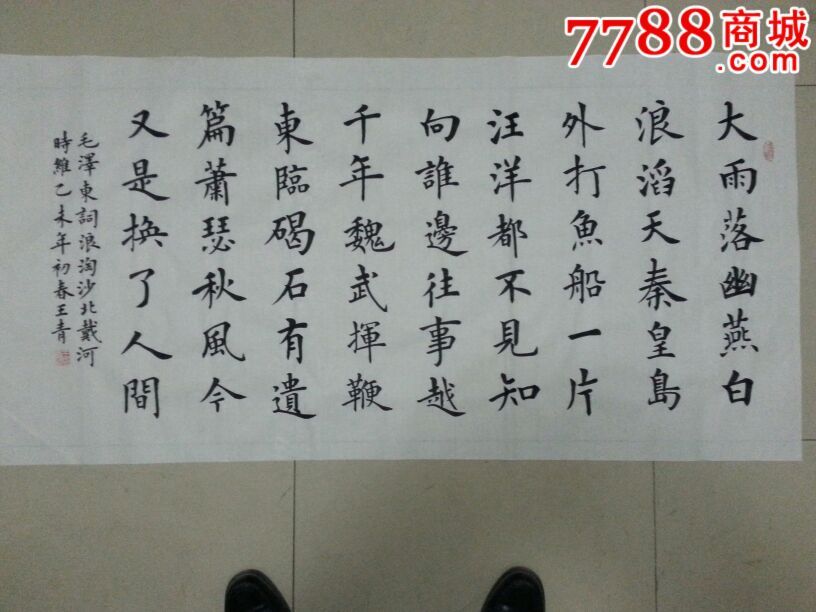 7788商城
大雨落幽燕白
浪滔天秦皇島
外打魚船一片
汪洋都不見知
向誰邊往事越
千年魏武揮鞭
東臨碣石有遺
篇蕭瑟秋風今
又是換了人間
毛澤東詞浪淘沙北戴河
時維乙未年初春王青